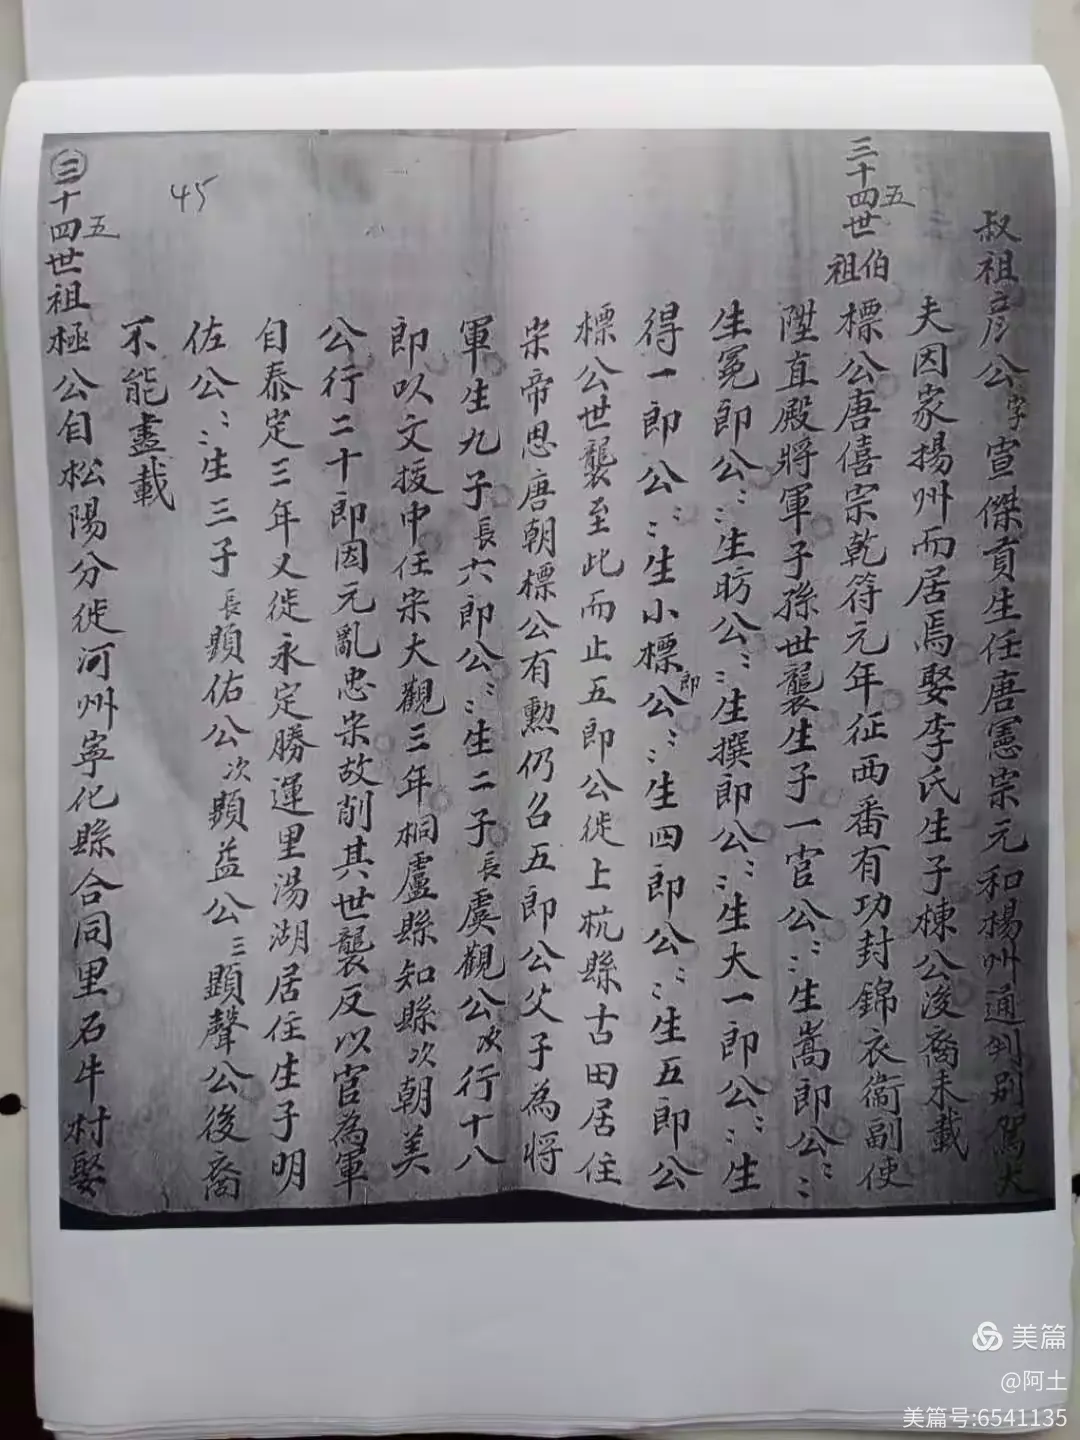 叔祖彦公字宣傑貢生任唐憲宗元和楊州通判別駕大
夫因家揚州而居焉娶李氏生子棟公後裔未載
三十四世五伯祖
標公唐僖宗乾符元年征西番有功封錦衣衞副使
陞直殿將軍子孫世襲生子一官公〻生嵩郎公〻
生冕郎公〻生昉公〻生撰郎公〻生大一郎公〻生
得一郎公〻生小標郎公〻生四郎公〻生五郎公
標公世襲至此而止五郎公徙上杭縣古田居住
宋帝思唐朝標公有勲仍召五郎公父子為將
軍生九子長六郎公〻生二子長虞觀公次行十八
郎以文援中任宋大觀三年桐廬縣知縣次朝美
公行二十郎因元亂忠宋故削其世襲反以官為軍
自泰定三年又徙永定勝運里湯湖居住生子明
佐公〻生三子長顯佑公次顯益公三顯聲公後裔
不能盡載
45
三十四世五祖極公自松陽分徙河州寧化縣合同里石牛村娶
美篇
@阿土
美篇号:6541135